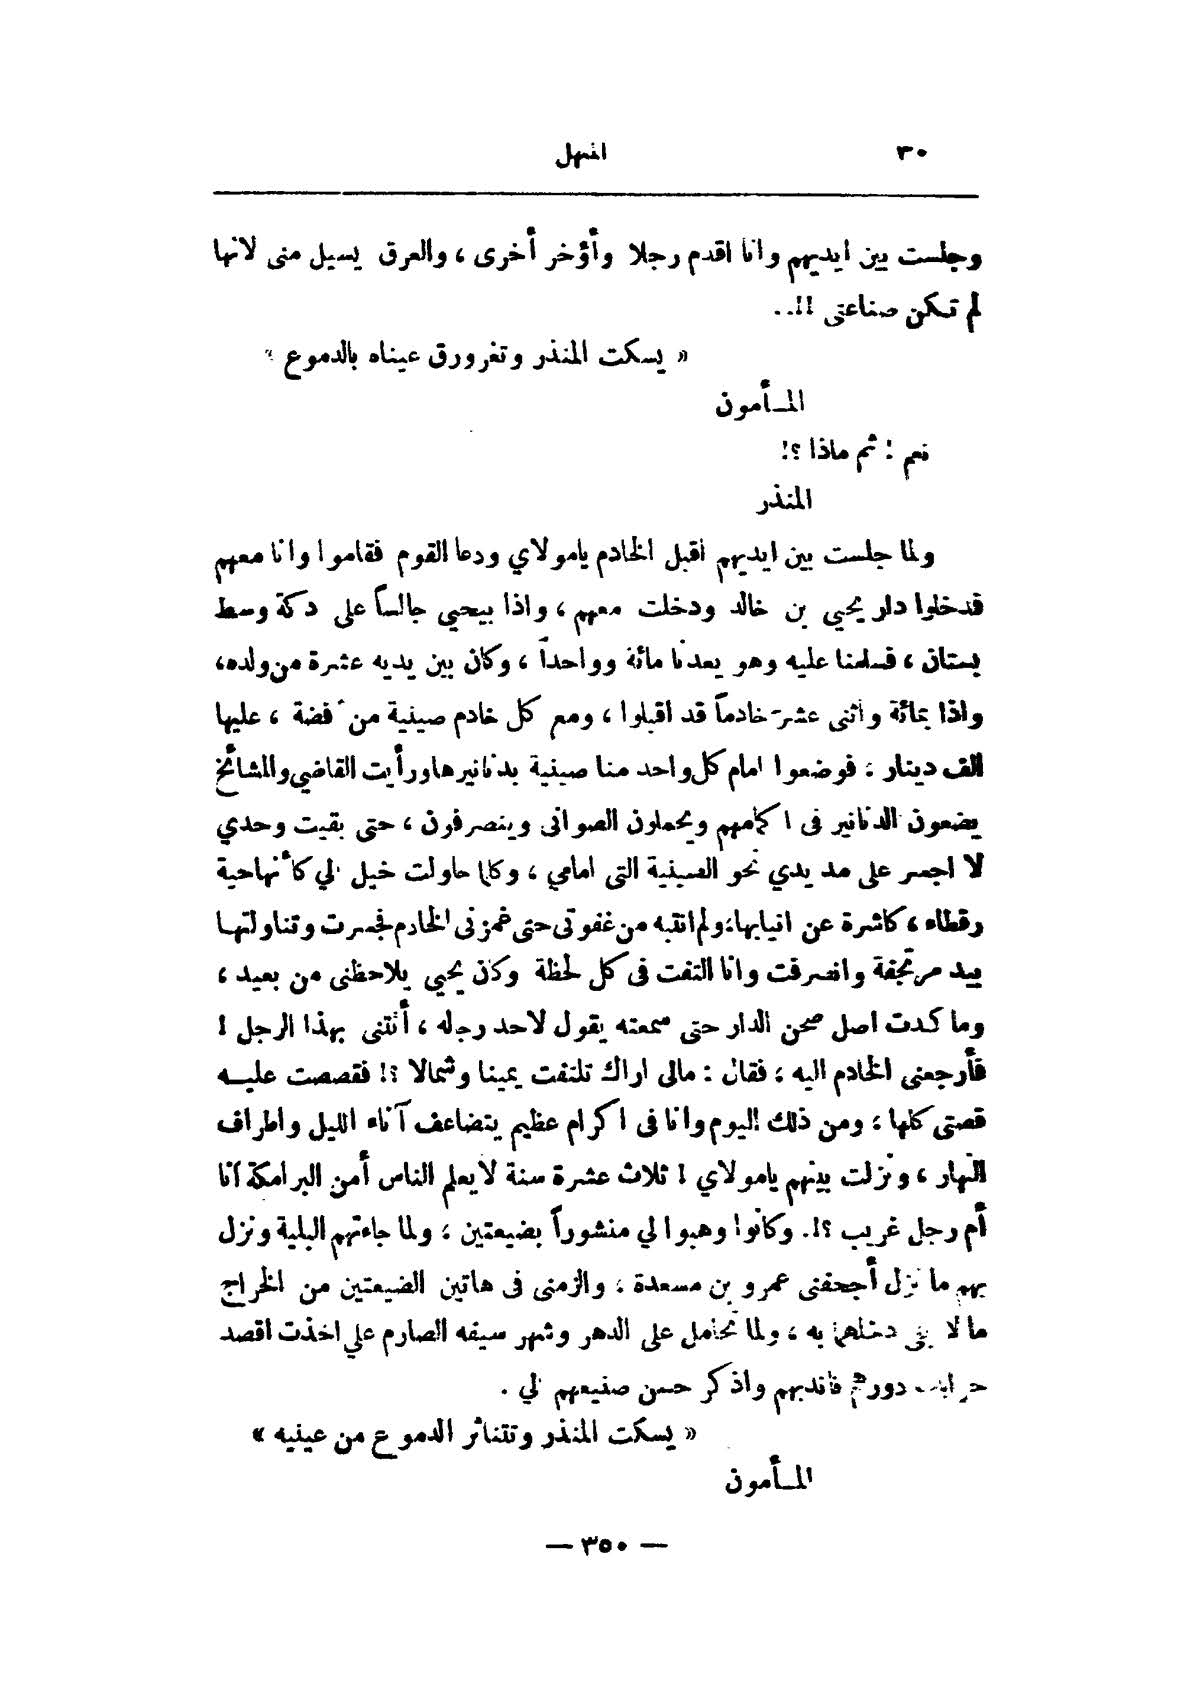 ٣٠
المنهل
وجلست بين ايديهم وانا اقدم رجلا وأؤخر أخرى ، والعرق يسيل منى لانها
لم تكن صناعتى !!..
« يسكت المنذر وتغرورق عيناه بالدموع »
المـأمون
نعم ! ثم ماذا ؟!
المنذر
ولما جلست بين ايديهم أقبل الخادم يامولاي ودعا القوم فقاموا وانا معهم
فدخلوا دار يحيي بن خالد ودخلت معهم ، واذا بيحيي جالساً على دكة وسط
بستان ، فسلمنا عليه وهو يعدنا مائة وواحداً ، وكان بين يديه عشرة من ولده،
واذا بمائة وأثنى عشر خادماً قد اقبلوا ، ومع كل خادم صينية من فضة ، عليها
الف دينار ، فوضعوا امام كل واحد منا صينية بدنانيرها ورأيت القاضي والمشائخ
يضعون الدنانير فى اكمامهم ويحملون الصوانى وينصرفون ، حتى بقيت وحدي
لا اجسر على مد يدي نحو الصينية التى امامي ، وكلما حاولت خيل لي كأنها حية
رقطاء ، كاشرة عن انيابها، ولم انتبه من غفوتى حتى غمزنى الخادم فجسرت وتناولتهـا
بيد مرتجفة وانصرفت وانا التفت فى كل لحظة وكان يحيي يلاحظنى من بعيد ،
وما كدت اصل صحن الدار حتى سمعته يقول لاحد رجاله ، أئتنى بهذا الرجل !
فأرجعنى الخادم اليه ، فقال : مالى اراك تلتفت يمينا وشمالا ؟! فقصصت عليــه
قصتى كلها ، ومن ذلك اليوم وانا فى اكرام عظيم يتضاعف آناء الليل واطراف
النهار ، ونزلت بينهم يامولاي ! ثلاث عشرة سنة لايعلم الناس أمن البرامكة انا
أم رجل غريب ؟!. وكانوا وهبوا لي منشوراً بضيعتين ، ولما جاءتهم البلية ونزل
بهم ما نزل أجحفنى عمرو بن مسعدة ، والزمنى فى هاتين الضيعتين من الخراج
ما لا يفى دخلهما به ، ولما تحامل على الدهر وشهر سيفه الصارم علي اخذت اقصد
دورهم فاندبهم واذكر حسن صنيعهم لي .
« يسكت المنذر وتتناثر الدموع من عينيه »
المـأمون
— ٣٥٠ —